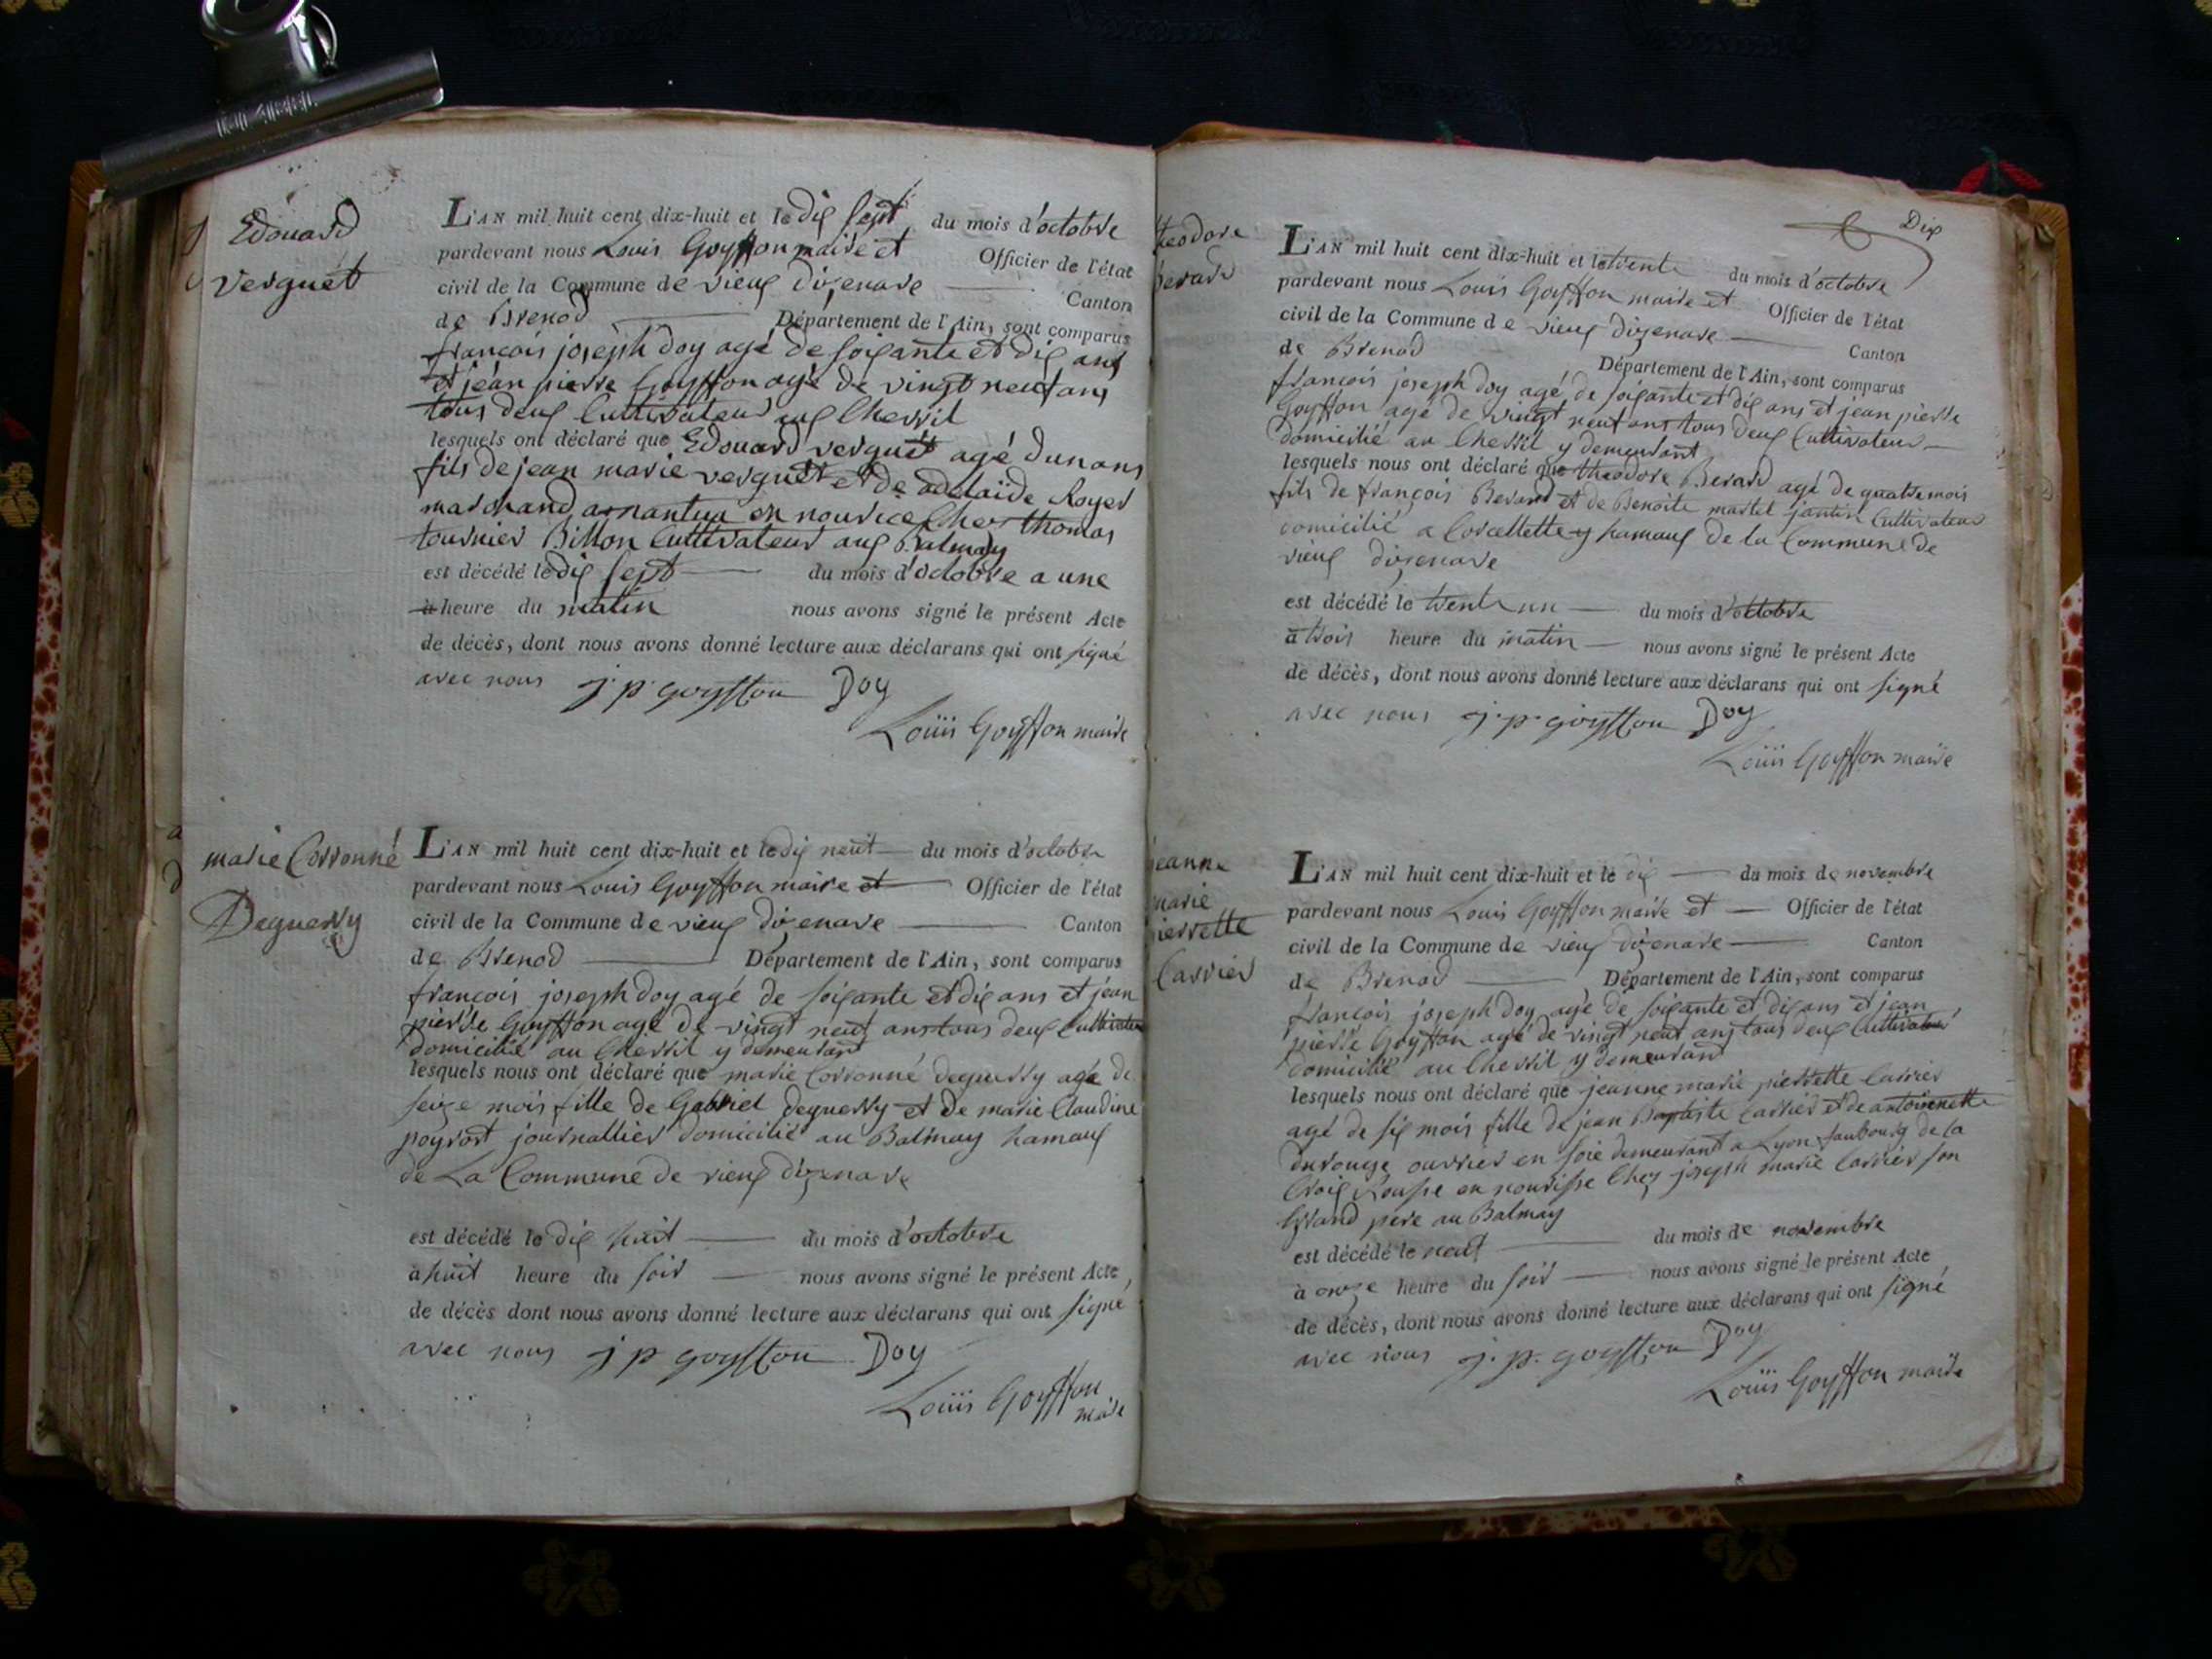 Edouard
verguet
L'AN mil huit cent dix-huit et le dix sept du mois d'octobre
pardevant nous Louis Goyffon maire et Officier de l'état
civil de la Commune de vieux dizenave Canton
de Brenod Département de l'Ain, sont comparus
françois joseph Doy agé de soixante et dix ans
et jean pierre Goyffon agé de vingt neuf ans
tous deux Cultivateur aux Chevril
lesquels ont déclaré que Edouard verguet agé dun ans
fils de jean marie verguet et de adelaïde Royer
marchand a nantua en nourice Chez thomas
tournier Billon Cultivateur aux Balmay
est décédé le dix sept du mois d'octobre a une
à heure du matin nous avons signé le présent Acte
de décès, dont nous avons donné lecture aux déclarans qui ont signé
avec nous j. p. goyffon Doy
Louis Goyffon maire
marie Corronné
Deguerry
L'AN mil huit cent dix-huit et le dix neuf du mois d'octobre
pardevant nous Louis Goyffon maire et Officier de l'état
civil de la Commune de vieux dizenave Canton
de Brenod Département de l'Ain, sont comparus
françois joseph Doy agé de soixante et dix ans et jean
pierre Goyffon agé de vingt neuf ans tous deux Cultivateur
domicilié au Chevril y demeurant
lesquels nous ont déclaré que marie Corronné deguerry agé de
seize mois fille de Gabriel deguerry et de marie Claudine
peysort journallier domicilié au Balmay hamaux
de La Commune de vieux dizenave
est décédé le dix huit du mois d'octobre
à huit heure du soir nous avons signé le présent Acte,
de décès dont nous avons donné lecture aux déclarans qui ont signé
avec nous j p goyffon Doy
Louis Goyffon
maire
Dix
theodore
berard
L'AN mil huit cent dix-huit et le trente du mois d'octobre
pardevant nous Louis Goyffon maire et Officier de l'état
civil de la Commune de vieux dizenave Canton
de Brenod Département de l'Ain, sont comparus
françois joseph Doy agé de soixante et dix ans et jean pierre
Goyffon agé de vingt neuf ans tous deux Cultivateur
domicilié au Chevril y demeurant
lesquels nous ont déclaré que theodore Berard agé de quatre mois
fils de françois Berard et de Benoite martel jantin Cultivateur
domicilié a Corcellette hamaux de la Commune de
vieux dizenave
est décédé le trente un du mois d'octobre
à trois heure du matin nous avons signé le présent Acte
de décès, dont nous avons donné lecture aux déclarans qui ont signé
avec nous j. p. goyffon Doy
Louis Goyffon maire
jeanne
marie
pierrette
Carrier
L'AN mil huit cent dix-huit et le dix du mois de novembre
pardevant nous Louis Goyffon maire et Officier de l'état
civil de la Commune de vieux dizenave Canton
de Brenod Département de l'Ain, sont comparus
françois joseph Doy agé de soixante et dix ans et jean
pierre Goyffon agé de vingt neuf ans tous deux Cultivateur
domicilié au Chevril y demeurant
lesquels nous ont déclaré que jeanne marie pierrette Carrier
agé de six mois fille de jean Baptiste Carrier et de antoinette
durouze ouvrier en soie demeurant a Lyon faubourg de la
Croix Rousse en nourisse Chez joseph marie Carrier son
Grand pere au Balmay
est décédé le neuf du mois de novembre
à onze heure du soir nous avons signé le présent Acte
de décès, dont nous avons donné lecture aux déclarans qui ont signé
avec nous j. p. goyffon Doy
Louis Goyffon maire